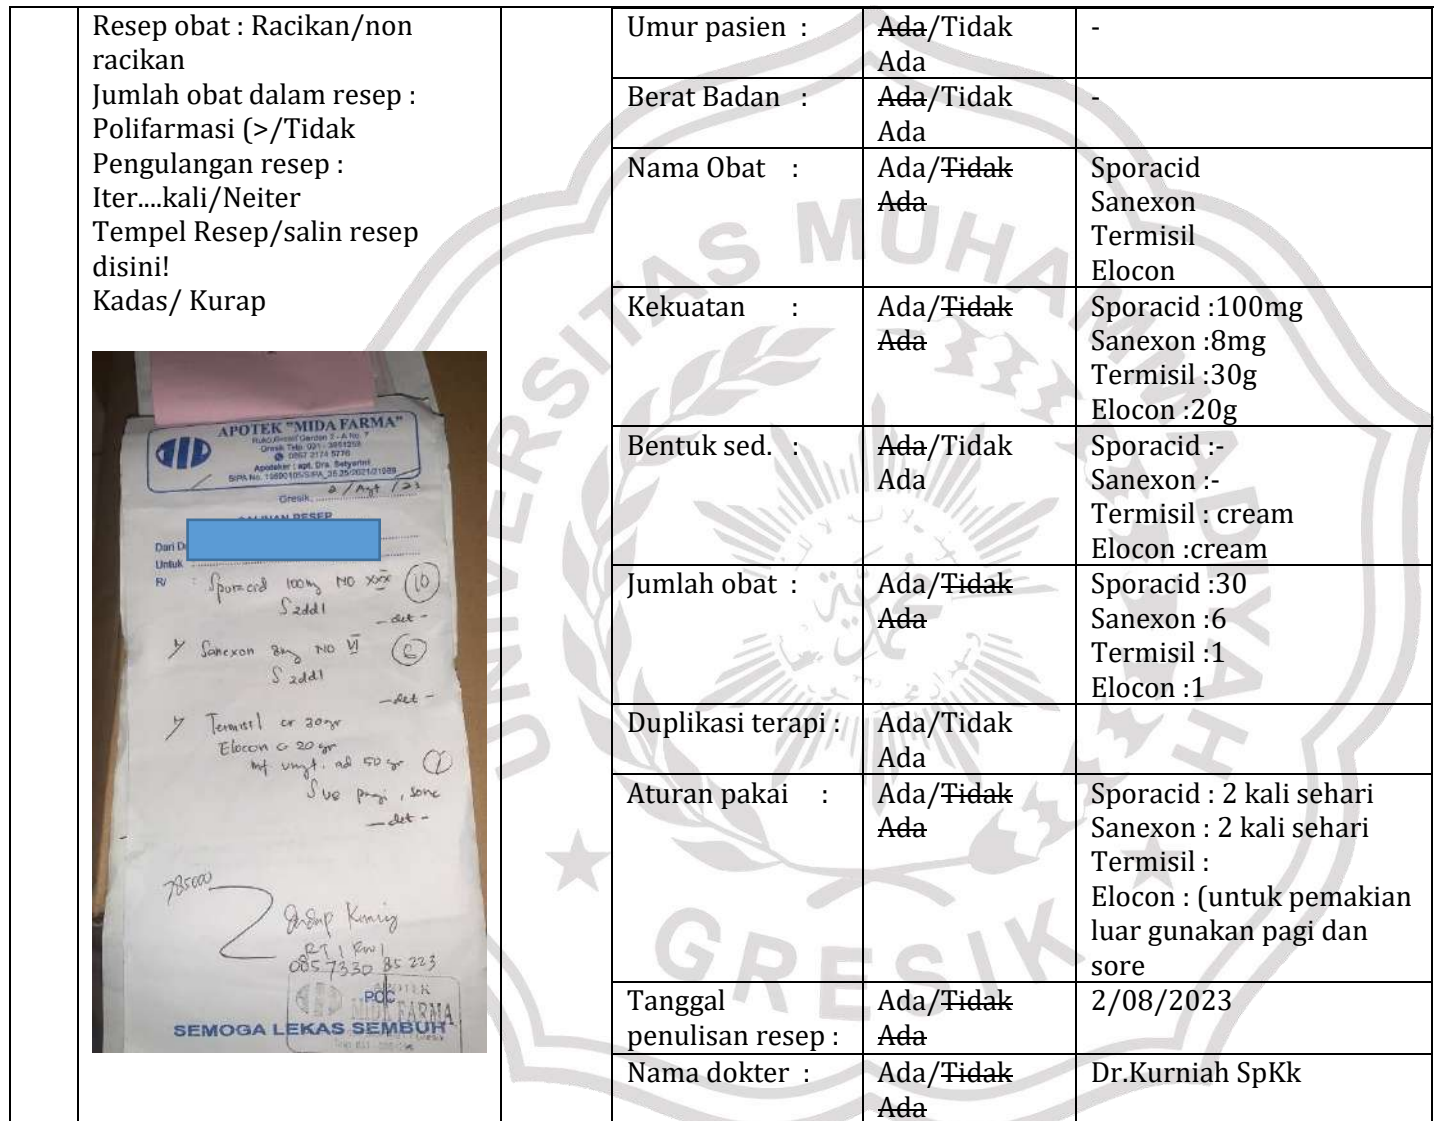 Resep obat : Racikan/non
racikan
Jumlah obat dalam resep :
Polifarmasi (>/Tidak
Pengulangan resep :
Iter....kali/Neiter
Tempel Resep/salin resep
disini!
Kadas/ Kurap
APOTEK "MIDA FARMA"
Apoteker : apt. Dra. Setyarini
Gresik, 2/Agt/23
SALINAN RESEP
Untuk
R/ Sporacid 100mg NO XXX (10)
S 2dd1
- det -
Sanexon 8mg NO VI (6)
S 2dd1
- det -
Termisil cr 30gr
Elocon cr 20 gr
mf ungt. ad 50 gr (1)
S ue pagi, sore
- det -
785000
RT 1 RW 1
085 7330 85 223
PCC
APOTEK
MIDA FARMA
SEMOGA LEKAS SEMBUH
Umur pasien : Ada/Tidak Ada -
Berat Badan : Ada/Tidak Ada -
Nama Obat : Ada/Tidak Ada Sporacid
Sanexon
Termisil
Elocon
Kekuatan : Ada/Tidak Ada Sporacid :100mg
Sanexon :8mg
Termisil :30g
Elocon :20g
Bentuk sed. : Ada/Tidak Ada Sporacid :-
Sanexon :-
Termisil : cream
Elocon :cream
Jumlah obat : Ada/Tidak Ada Sporacid :30
Sanexon :6
Termisil :1
Elocon :1
Duplikasi terapi : Ada/Tidak Ada
Aturan pakai : Ada/Tidak Ada Sporacid : 2 kali sehari
Sanexon : 2 kali sehari
Termisil :
Elocon : (untuk pemakian
luar gunakan pagi dan
sore
Tanggal penulisan resep : Ada/Tidak Ada 2/08/2023
Nama dokter : Ada/Tidak Ada Dr.Kurniah SpKk
UNIVERSITAS MUHAMMADIYAH
GRESIK